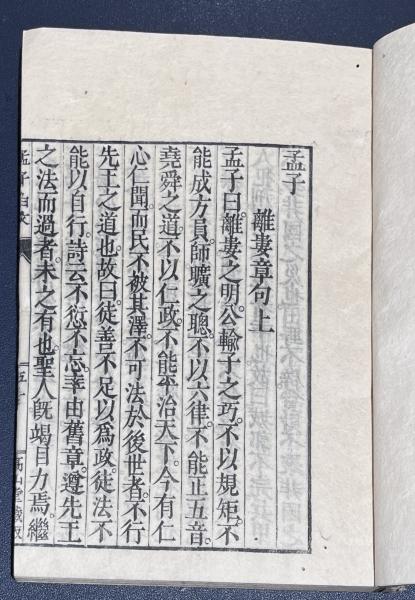 孟子
離婁章句上
孟子曰。離婁之明。公輸子之巧。不以規矩。不
能成方員。師曠之聰。不以六律。不能正五音。
堯舜之道。不以仁政。不能平治天下。今有仁
心仁聞。而民不被其澤。不可法於後世者。不行
先王之道也。故曰。徒善不足以爲政。徒法不
能以自行。詩云。不愆不忘。率由舊章。遵先王
之法而過者。未之有也。聖人旣竭目力焉。繼
孟子白文